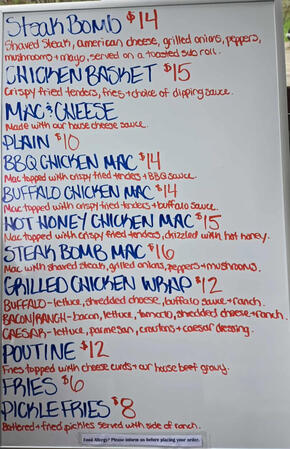 STEAK BOMB $14
Shaved Steak, american cheese, grilled onions, peppers,
mushrooms + mayo, served on a toasted sub roll.
CHICKEN BASKET $15
Crispy fried tenders, fries + choice of dipping sauce.
MAC & CHEESE
Made with our house cheese sauce.
PLAIN $10
BBQ CHICKEN MAC $14
Mac topped with crispy fried tenders + BBQ sauce.
BUFFALO CHICKEN MAC $14
Mac topped with crispy fried tenders + buffalo sauce.
HOT HONEY CHICKEN MAC $15
Mac topped with crispy fried tenders, drizzled with hot honey.
STEAK BOMB MAC $16
Mac with shaved steak, grilled onions, peppers + mushrooms.
GRILLED CHICKEN WRAP $12
BUFFALO - lettuce, shredded cheese, buffalo sauce + ranch.
BACON/RANCH - bacon, lettuce, tomato, shredded cheese + ranch.
CAESAR - lettuce, parmesan, croutons + caesar dressing.
POUTINE $12
Fries topped with cheese curds + our house beef gravy.
FRIES $6
PICKLE FRIES $8
Battered + fried pickles served with side of ranch.
Food Allergy? Please inform us before placing your order.